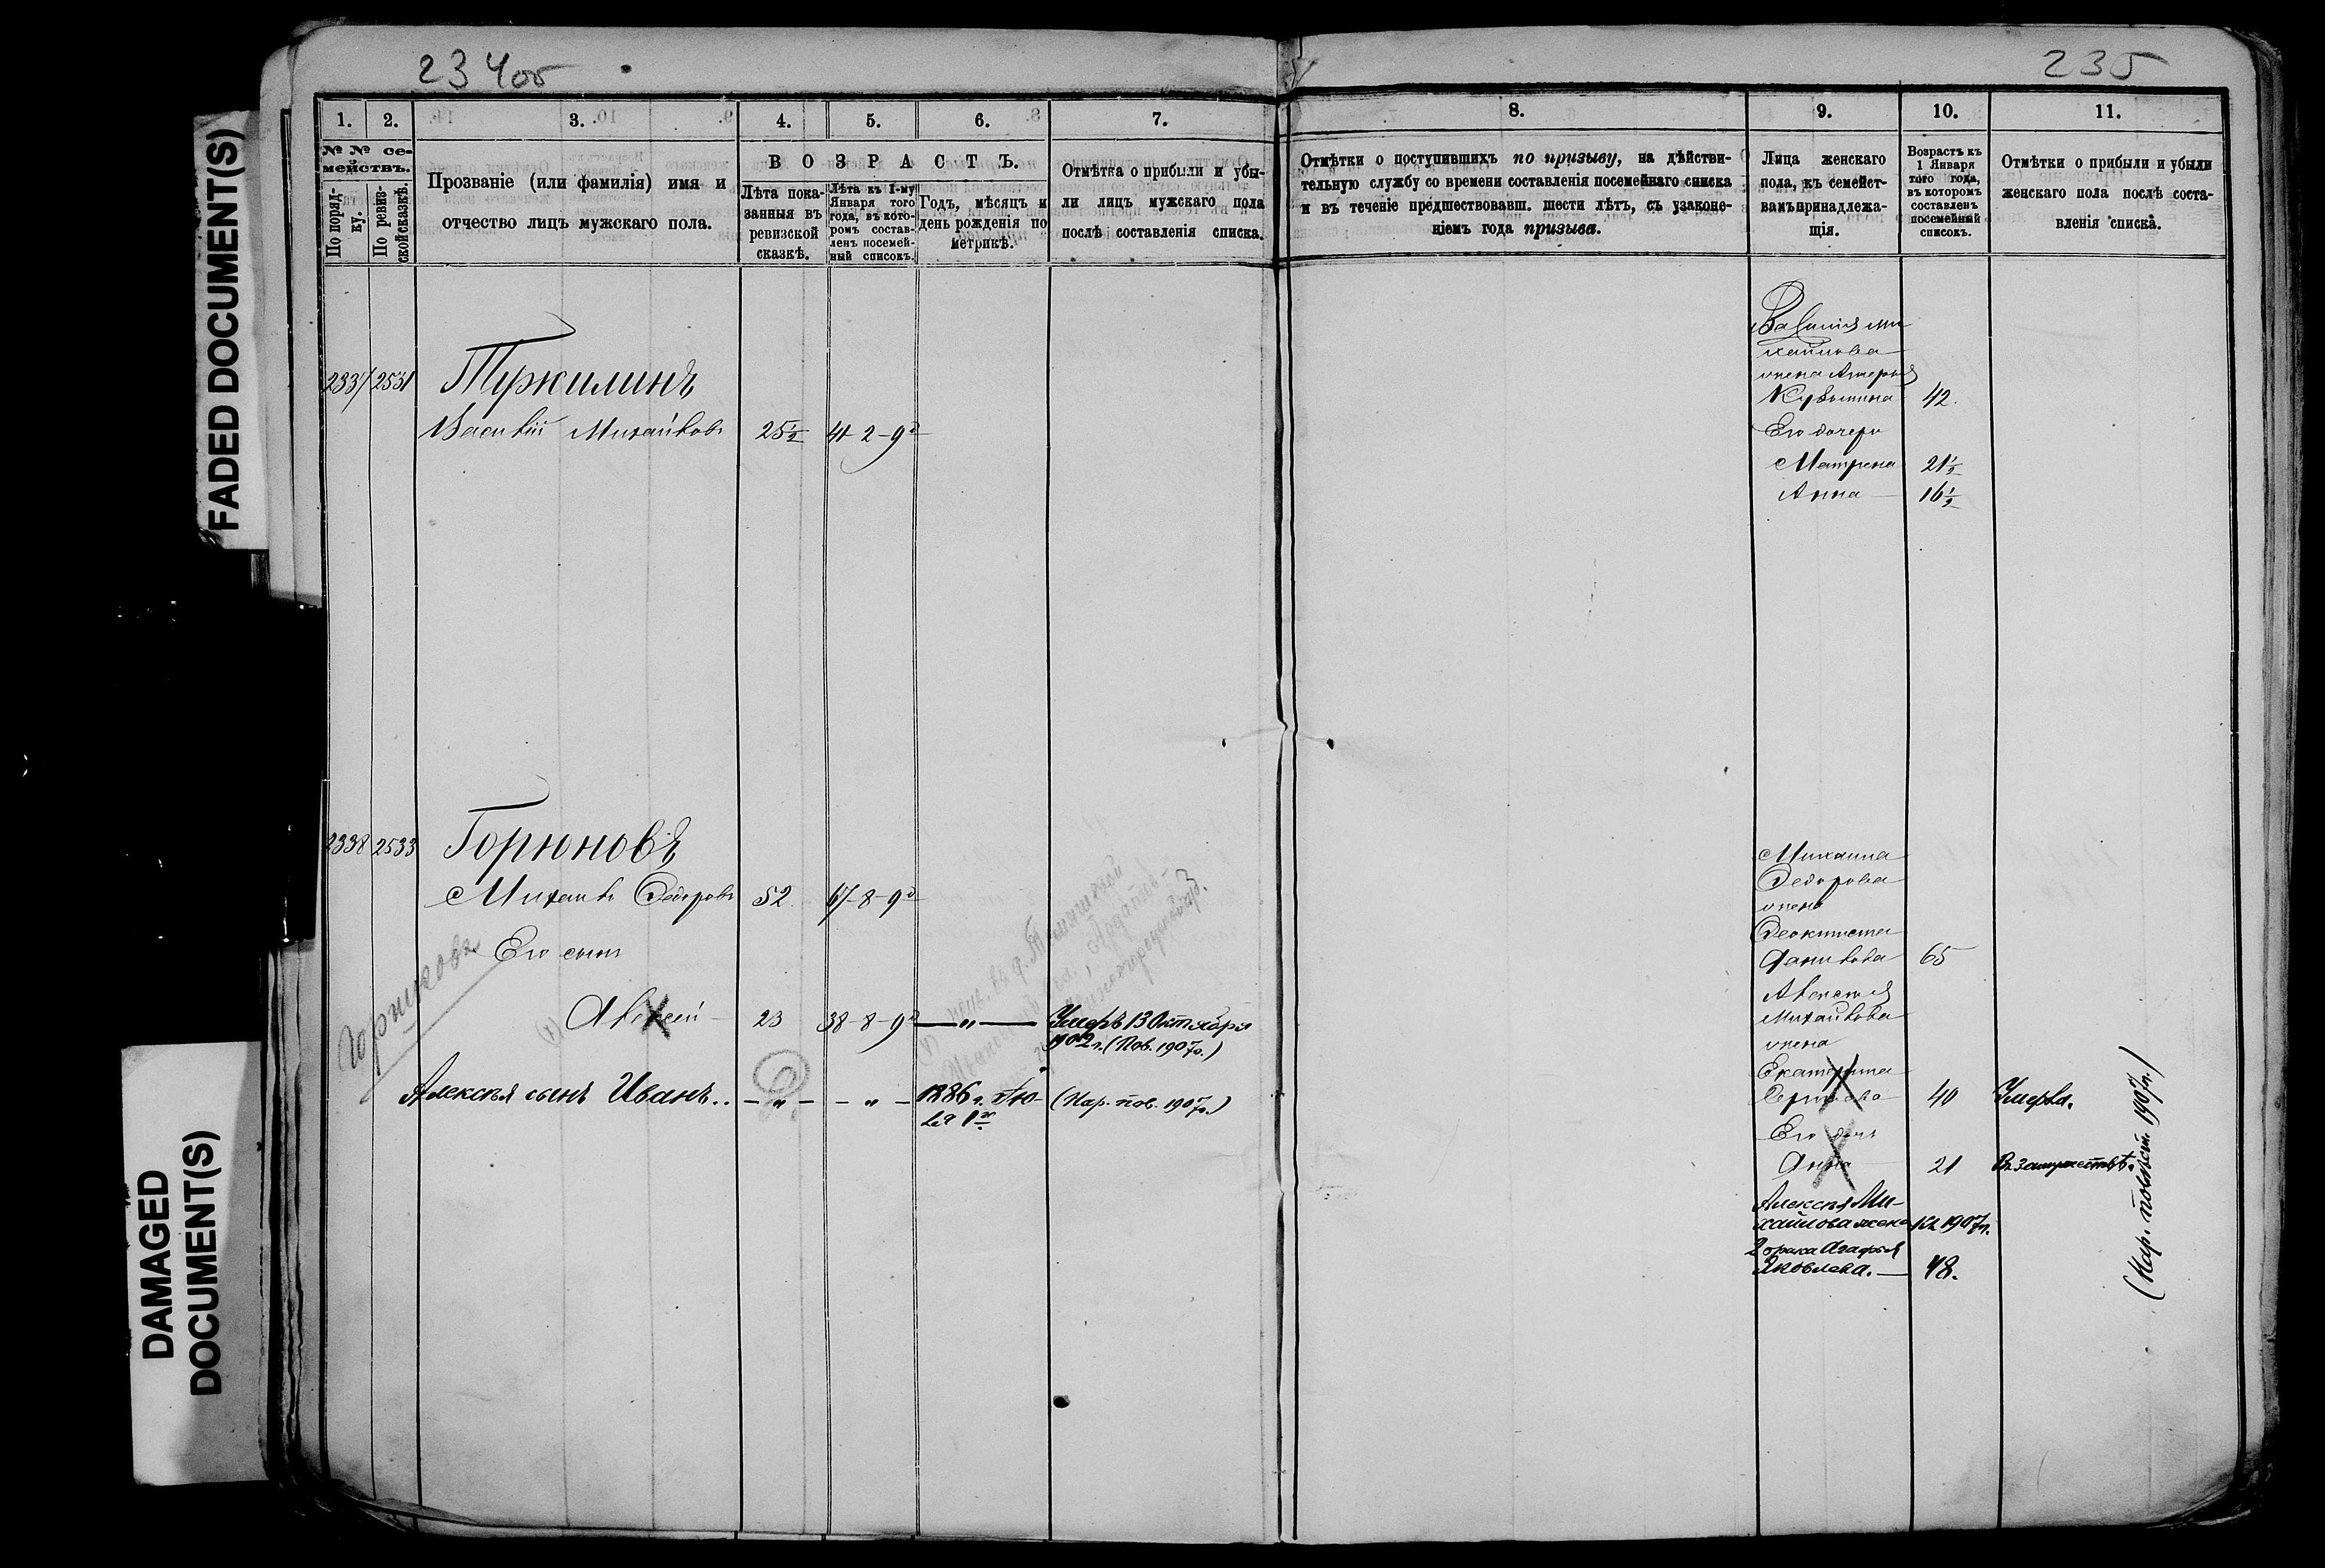 234об
235
FADED DOCUMENT(S)
DAMAGED
DOCUMENT(S)
1.
2.
3.
4.
5.
6.
7.
№ № се-
мействъ.
По поряд-
ку.
По ревиз-
ской сказкѣ.
Прозваніе (или фамилія) имя и
отчество лицъ мужскаго пола.
ВОЗРАСТЪ.
Лѣта пока-
занныя въ
ревизской
сказкѣ.
Лѣта къ 1-му
Января того
года, въ кото-
ромъ состав-
ленъ посемей-
ный списокъ.
Годъ, мѣсяцъ и
день рожденія по
метрикѣ.
Отмѣтка о прибыли и убы-
ли лицъ мужскаго пола
послѣ составленія списка.
2337
2531
Туркилинъ
Василій Михайловъ
25½
41-2-92
2338
2533
Горюновъ
Михаилъ Федоровъ
52
67-8-92
Его сынъ
Горшковъ
Алексей
23
38-8-92
—„—
Умеръ 13 Октября
1902 г. (Пов. 1907 г.)
Алексѣя сынъ Иванъ..
— „ —
— „ —
1886 г. Ію-
ля 1го
(Нар. пов. 1907 г.)
8.
9.
10.
11.
Отмѣтки о поступившихъ по призыву, на дѣйстви-
тельную службу со времени составленія посемейнаго списка
и въ теченіе предшествовавш. шести лѣтъ, съ узаконе-
ніемъ года призыва.
Лица женскаго
пола, къ семейст-
вамъ принадлежа-
щія.
Возрастъ къ
1 Января
того года,
въ которомъ
составленъ
посемейный
списокъ.
Отмѣтки о прибыли и убыли
женскаго пола послѣ соста-
вленія списка.
Василія Ми
хайлова
жена
Кузьмина
42.
Его дочери
Матрена
21½
Анна
16½
Михаила
Федорова
жена
Феоктиста
Данилова
65
Алексея
Михайлова
жена
Екатерина
40
Умерла.
Его дочь
Анна
21
Въ замужествѣ.
Алексѣя Ми-
хайлова жена
Къ 1907 г.
2 брака Агафья
Яковлева.
48.
(Нар. повѣст. 1907 г.)